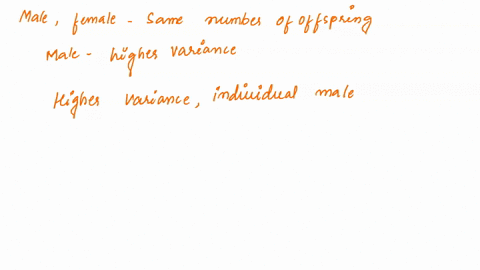 Male, female - Same number of offspring
Male - higher variance
Higher variance, individual male